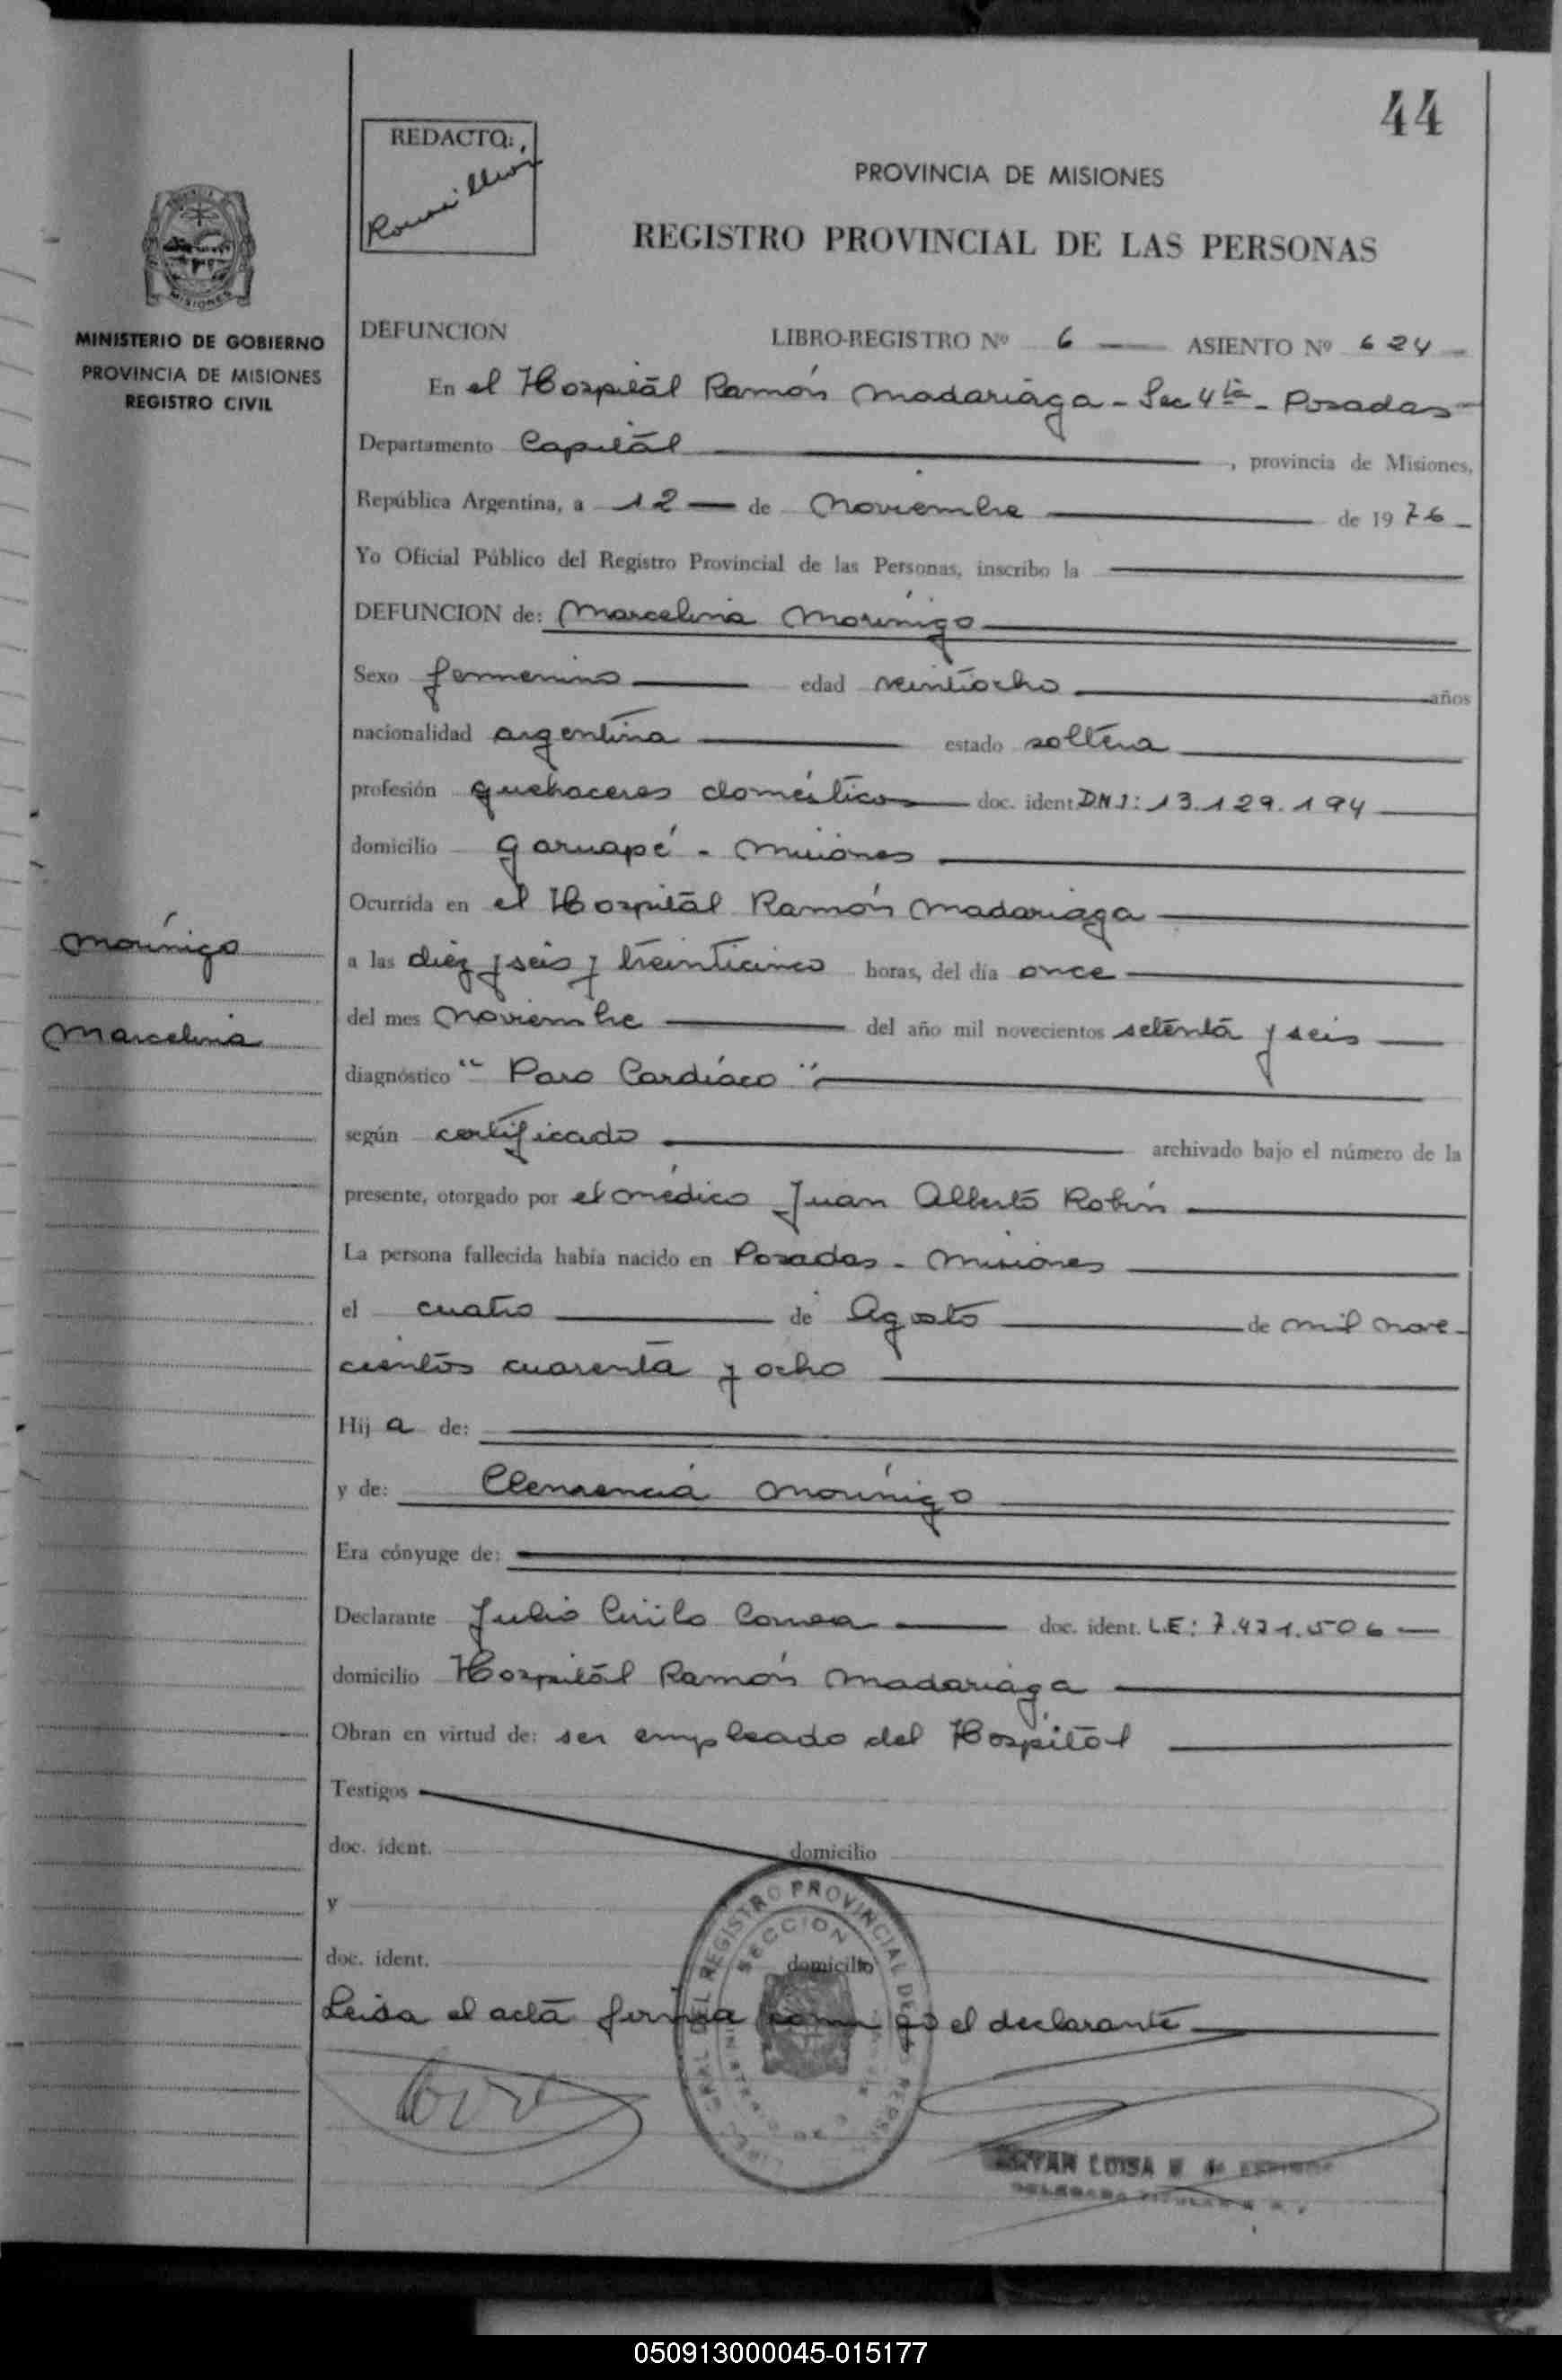 44
REDACTO:
PROVINCIA DE MISIONES
REGISTRO PROVINCIAL DE LAS PERSONAS
MISIONES
MINISTERIO DE GOBIERNO
PROVINCIA DE MISIONES
REGISTRO CIVIL
DEFUNCION LIBRO-REGISTRO Nº 6 — ASIENTO Nº 624 -
En el Hospital Ramón Madariaga - Sec 4ta - Posadas -
Departamento Capital , provincia de Misiones,
República Argentina, a 12 — de Noviembre de 1976 -
Yo Oficial Público del Registro Provincial de las Personas, inscribo la
DEFUNCION de: Marcelina Morínigo
Sexo femenino edad veintiocho años
nacionalidad argentina estado soltera
profesión quehaceres domésticos doc. ident DNI: 13.129.194
domicilio Garuapé - Misiones
Ocurrida en el Hospital Ramón Madariaga
Morínigo
a las diez y seis y treinticinco horas, del día once
Marcelina
del mes Noviembre del año mil novecientos setenta y seis
diagnóstico "Paro Cardíaco"
según certificado archivado bajo el número de la
presente, otorgado por el médico Juan Alberto Robin
La persona fallecida había nacido en Posadas - Misiones
el cuatro de Agosto de mil nove-
cientos cuarenta y ocho
Hij a de:
y de: Clemencia Morínigo
Era cónyuge de:
Declarante Julio Cirilo Correa doc. ident. L.E: 7.471.506 —
domicilio Hospital Ramón Madariaga
Obran en virtud de: ser empleado del Hospital
Testigos
doc. ident. domicilio
y
doc. ident. domicilio
DEL REGISTRO PROVINCIAL DE
SECCION
Leida el acta firma conmigo el declarante
LUISA
DELEGADA TITULAR
050913000045-015177